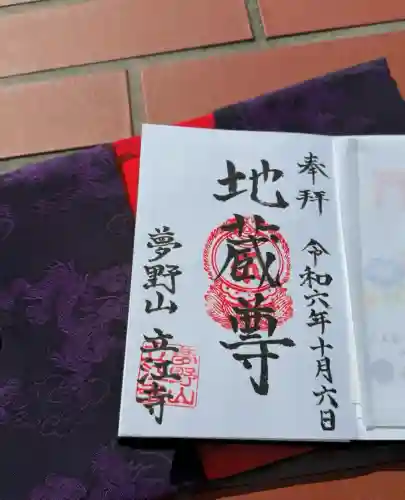 奉拝
令和六年十月六日
地蔵尊
夢野山
立江寺